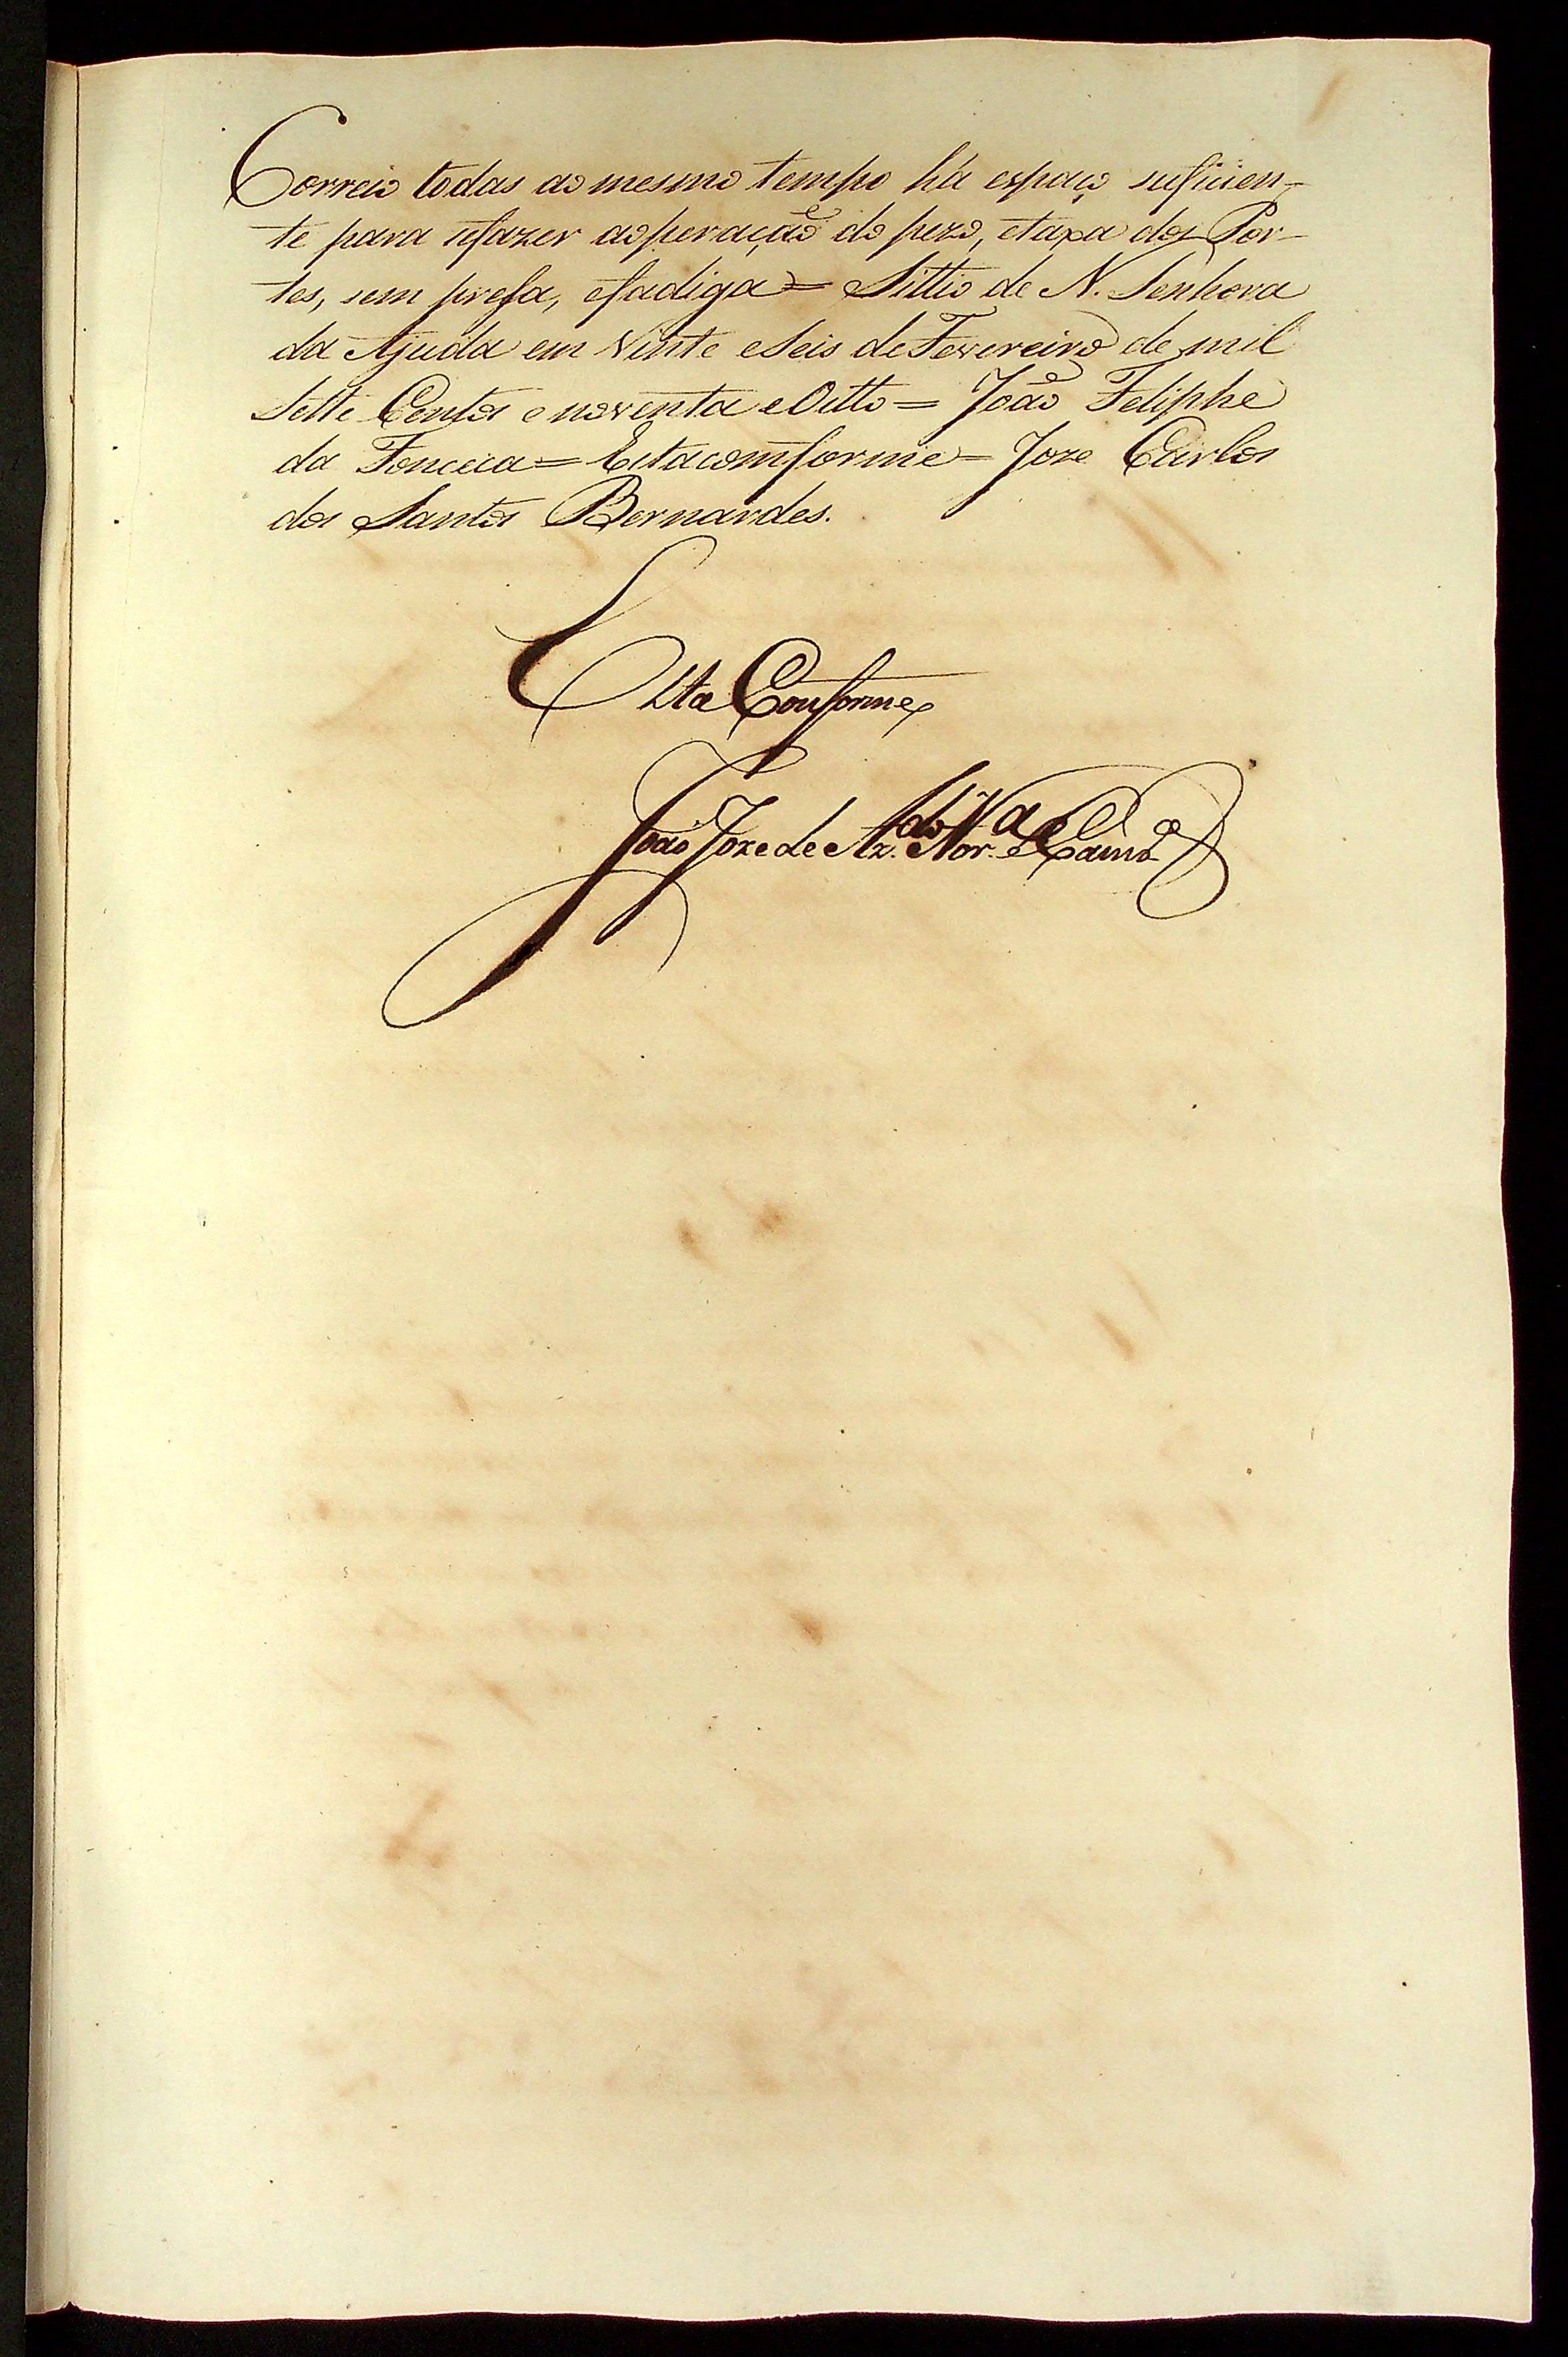 Correio todas ao mesmo tempo há espaço suficien-
te para sefazer aoperação do pezo, etaxa dos Por-
tes, sem presa, efadiga = Sittio de N. Senhora
da Ajuda em Vinte eSeis deFevereiro de mil
Sette Centos e noventa eOitto = João Feliphe
da Fonceca = Estacomforme = Joze Carlos
dos Santos Bernardes.
Esta Conforme
João Joze de